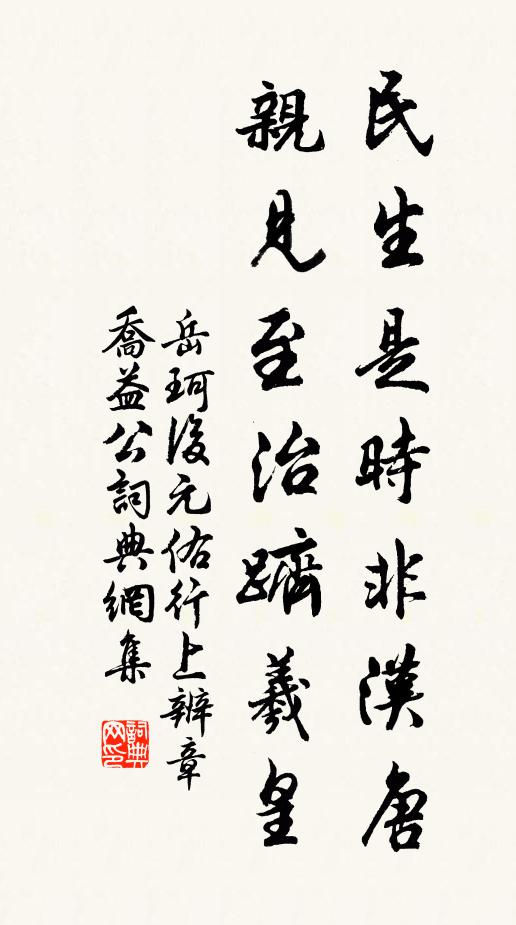 民生是時非漢唐
親見至治躋羲皇
岳珂復元佑行上辨章
喬益公詞典網集
詞典網印